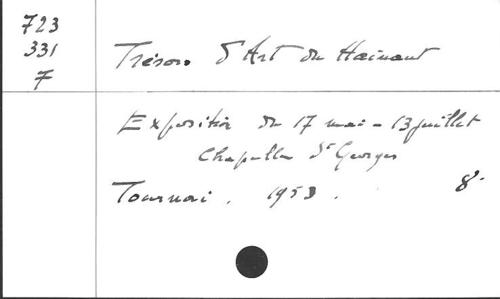 723
331
7
Trésors d'Art du Hainaut
Exposition du 17 mai - 13 juillet
Chapelle St Georges
Tournai. 1953. 8°